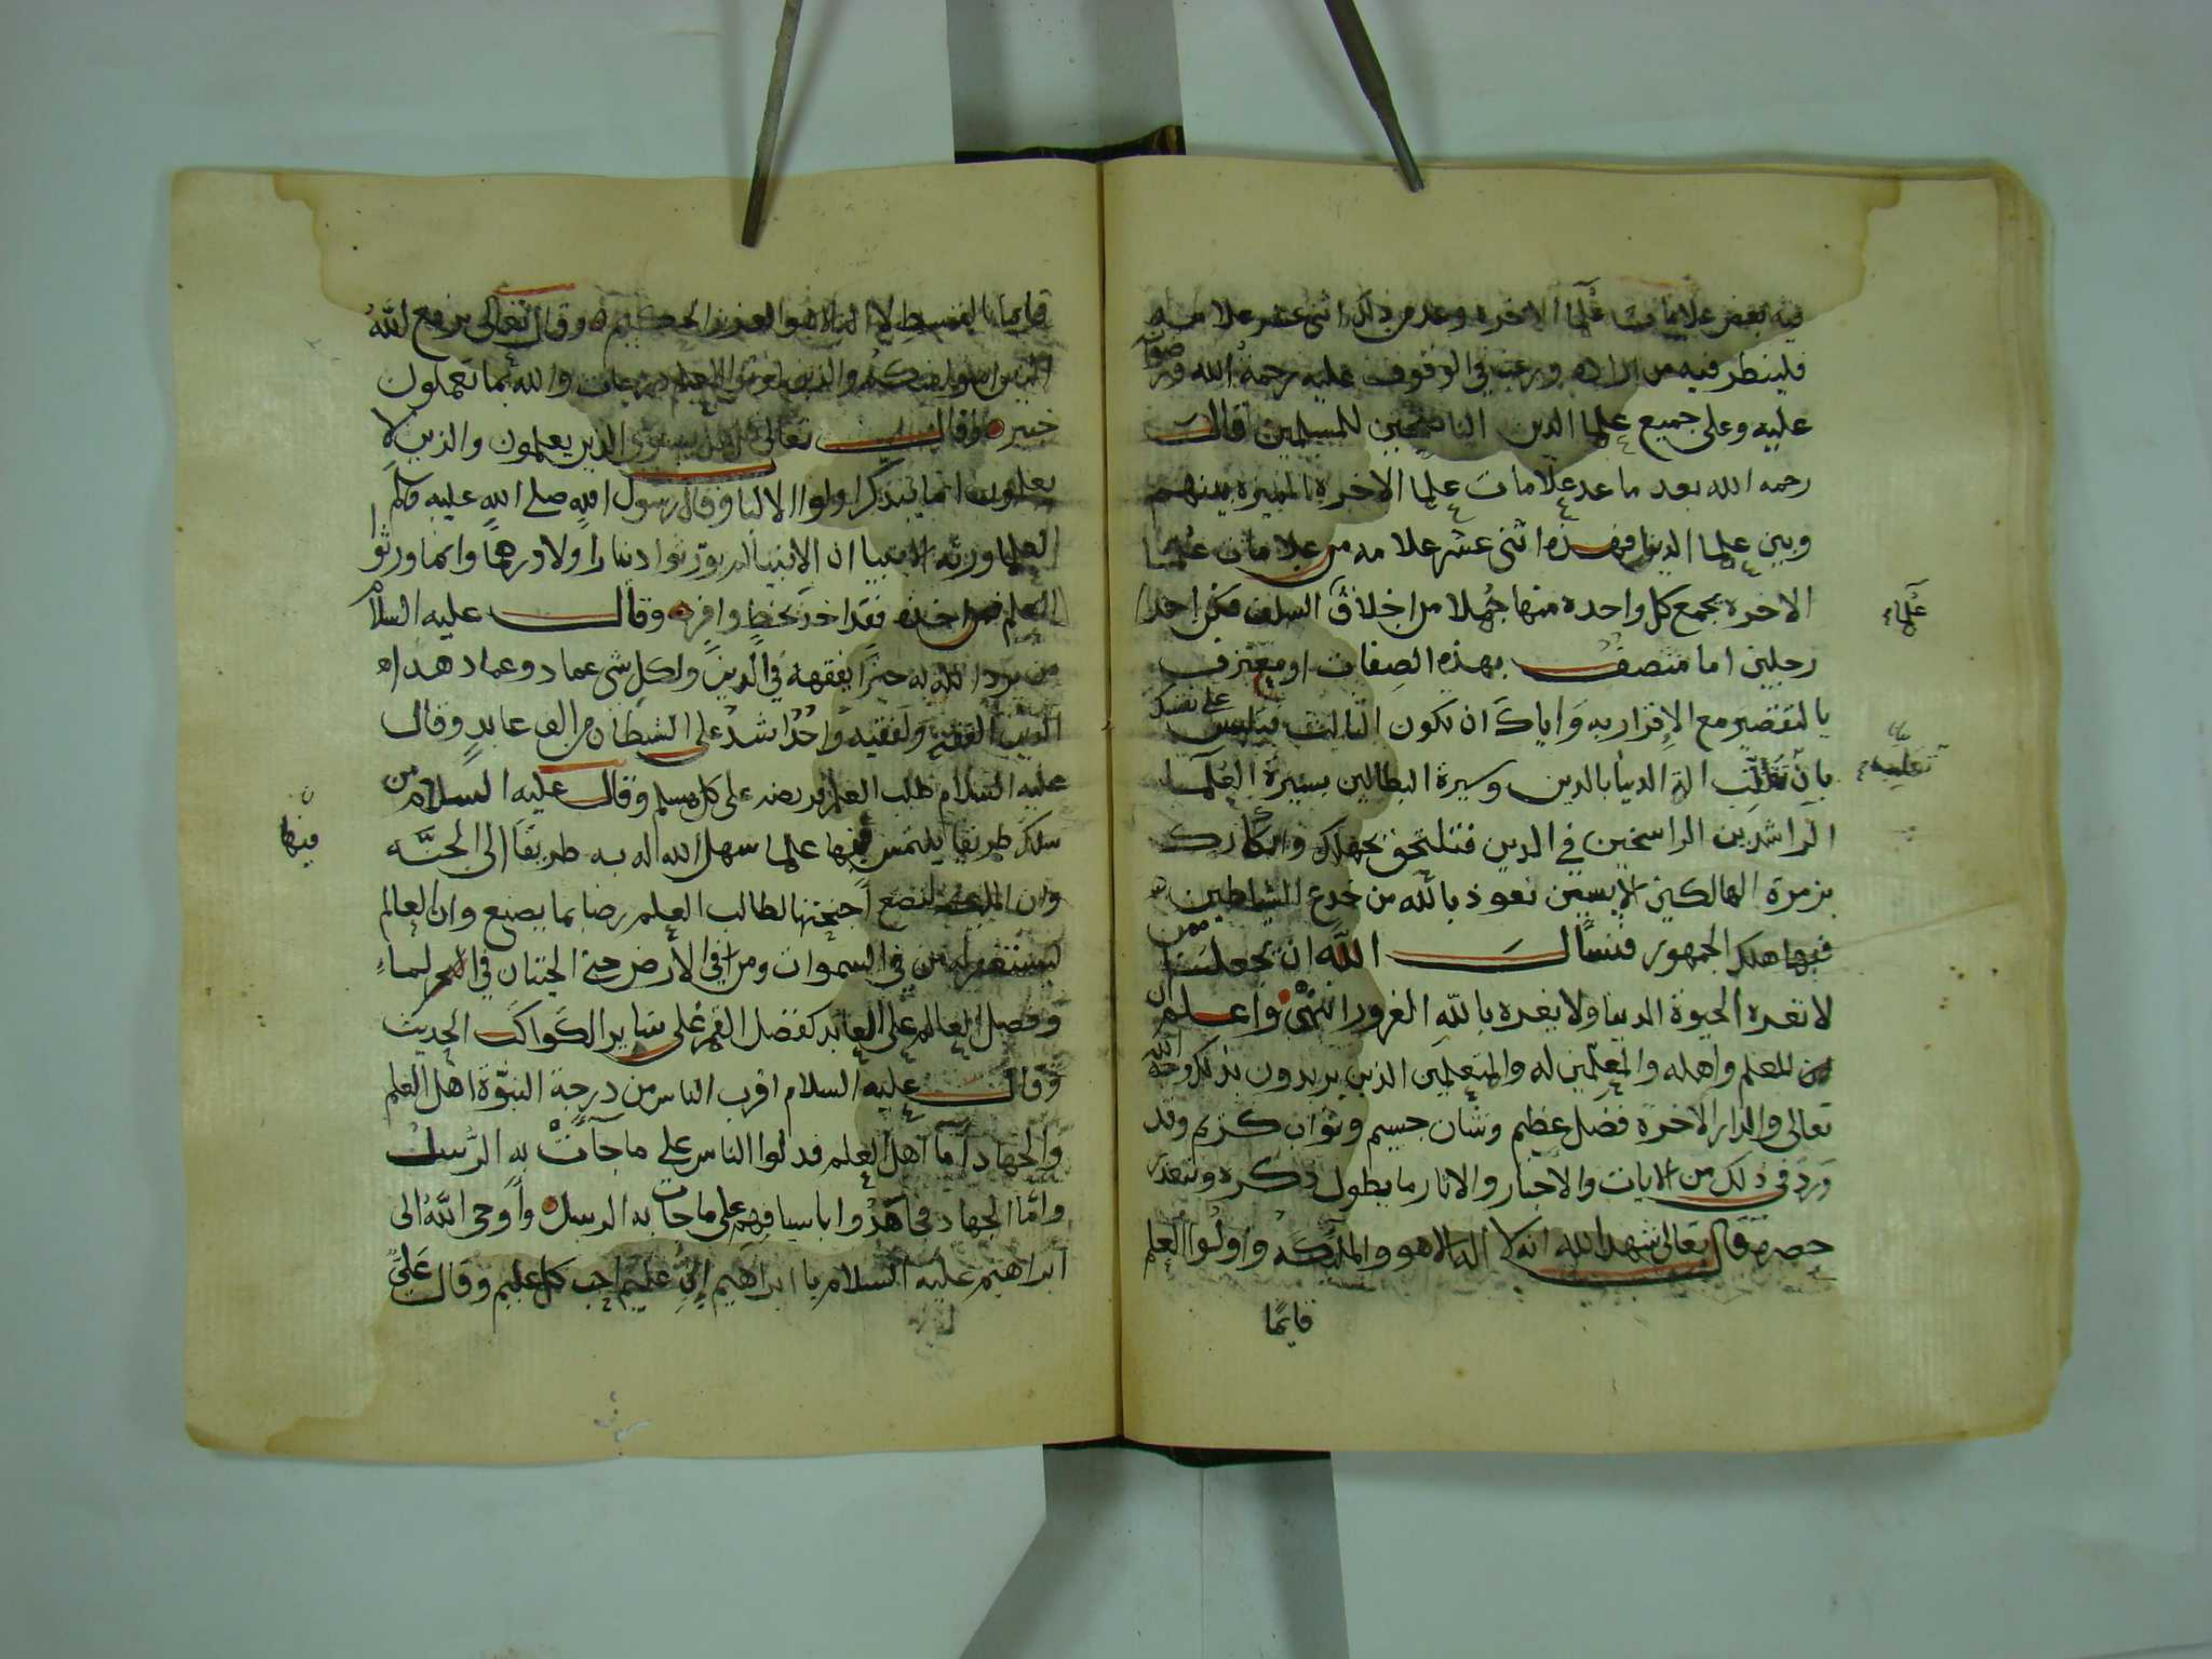 فيه بعض علامات علما الاخره وعد من ذلك اثنى عشر علامه
فلينظر فيه من اراده ورغب في الوقوف عليه رحمة الله ورضوانه
عليه وعلى جميع علما الدين الناصحين للمسلمين قال
رحمه الله بعد ما عد علامات علما الاخرة المميزة بينهم
وبين علما الدنيا فهذه اثنى عشر علامه من علامات علما
الاخرة يجمع كل واحدة منها جُملا من اخلاق السلف فكن احد
رجلين اما متصف بهذه الصفات او معترف
بالتقصير مع الإقرار به وَاياكَ ان تكون الثالث فتلبس على نفسك
بان تلقب الة الدنيا بالدين وسيرة البطالين بسيرة العلما
الراشدين الراسخين في الدين فتلتحق بجهلك وانكارك
بزمرة الهالكين الايسين نعوذ بالله من خدع الشياطين
فبها هلك الجمهور فنسال الله ان يجعلنا ممن
لا تغره الحيوة الدنيا ولا يغره بالله الغرور انتهى واعلم ان
للعلم واهله والمعلمين له والمتعلمين الذين يريدون بذلك وجه الله
تعالى والدار الاخرة فضل عظيم وشان جسيم وثواب كريم وقد
وَرَدَ في ذلك من الايات والاخبار والاثار ما يطول ذكره ويتعذر
حصره قال تعالى شهد الله انه لا اله الا هو والملئكه واولوا العلم
قايمًا
علماء
قايما بالقسط لا اله الا هو العزيز الحكيم وقال تعالى يرفع اللهُ
الذين امنوا منكم والذين اوتوا العلم درجات والله بما تعملون
خبير وقال تعالى قل هل يستوي الذين يعلمون والذين لا
يعلمون انما يتذكر اولوا الالباب وقال رسول الله صلى الله عليه وسلم
العلما ورثه الانبيا ان الانبيا لم يورّثوا دنيارا ولا درهما وانما ورثوا
العلم فمن اخذه فقد اخذ بحظ وافر وقال عليه السلام
من يرد الله به خيرًا يفقهه في الدين ولكل شى عماد وعماد هذا
الدين الفقه ولفقيه واحدٌ اشد على الشيطان من الف عابدٍ وقال
عليه السلام طلب العلم فريضه على كل مسلم وقال عليه السلام من
سلك طريقا يلتمس فيها علما سهل الله له به طريقًا الى الجنَّه
وان الملئكه لتضع اجنحتها لطالب العلم رضا بما يصنع وان العالم
ليستغفر له من في السموات ومن في الأرض حتى الحيتان في الماءِ
وفضل العالم على العابد كفضل القمر على ساير الكواكب الحديث
وقال عليه السلام اقرب الناس من درجة النبوّة اهل العلم
والجهاد اما اهل العلم فدلوا الناس على ما جآءتْ به الرسل
وامّا الجهاد فجاهدُوا باسيافهم على ما جات به الرسل وأوحى اللهُ الى
ابراهيم عليه السلام يا ابراهيم إنِّي عليم احب كل عليم وقال عَليّ
فيها